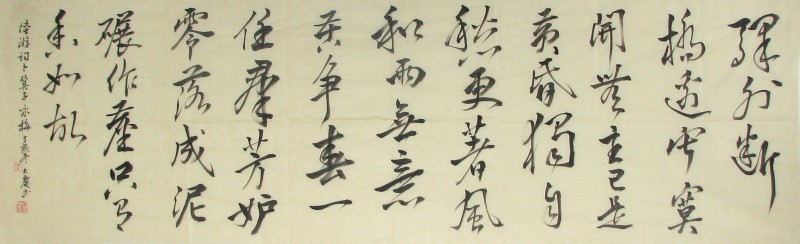 驛外斷
橋邊寂寞
開無主已是
黄昏獨自
愁更著風
和雨無意
苦争春一
任羣芳妒
零落成泥
碾作塵只有
香如故
陸游詞卜算子詠梅丁亥冬